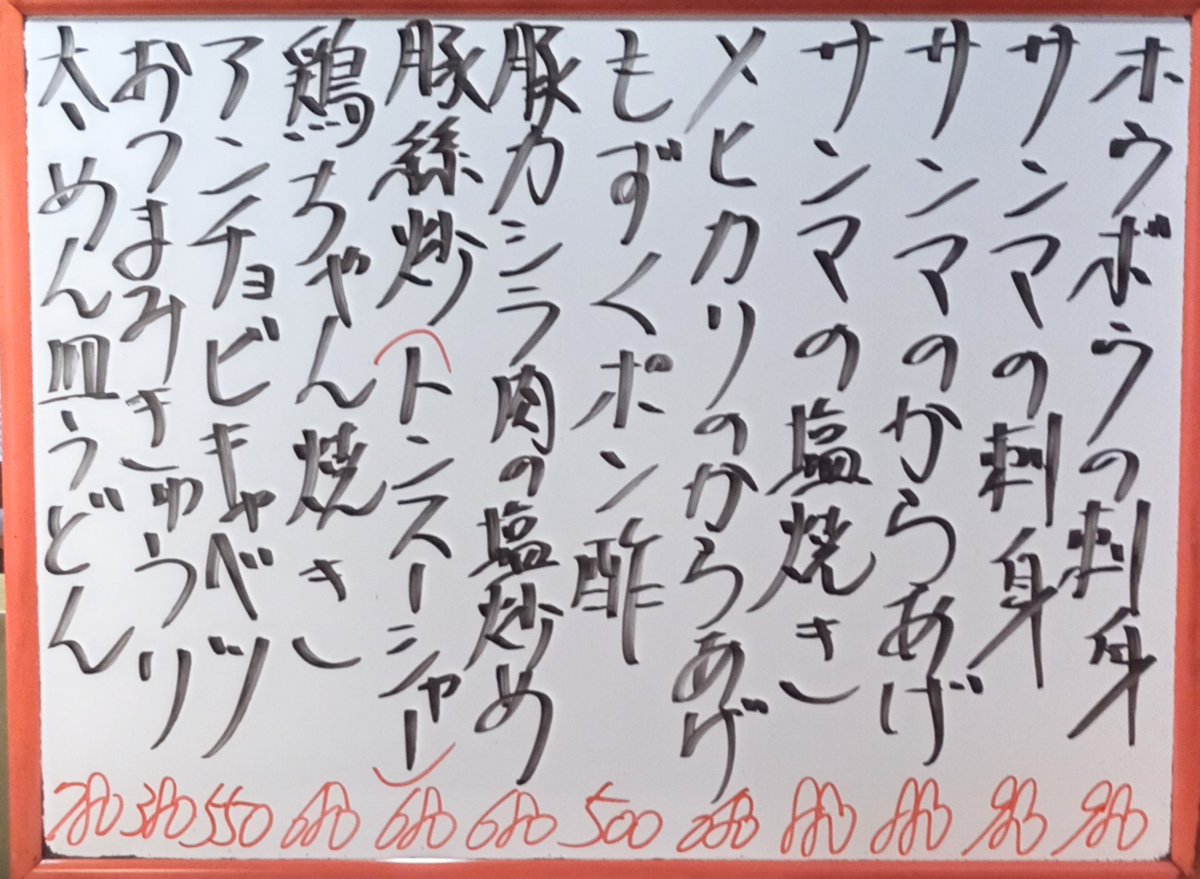 ホウボウの刺身 980
サンマの刺身 980
サンマのからあげ 880
サンマの塩焼き 880
メヒカリのからあげ 780
もずくポン酢 500
豚カシラ肉の塩炒め 680
豚絲炒(トンスーシャー) 680
鶏ちゃん焼き 680
アンチョビキャベツ 550
おつまみきゅうり 380
太めん皿うどん 780